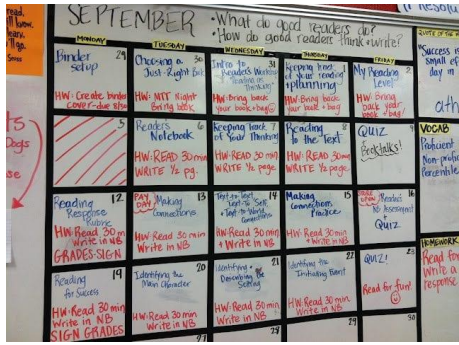 SEPTEMBER
• What do good readers do?
• How do good readers think + write?
MONDAY
TUESDAY
WEDNESDAY
THURSDAY
FRIDAY
29
Binder
setup
HW: Create binder
30
Choosing a
Just-Right Book
HW: MTT Night
Bring book
31
Intro to
Reader's Workshop
HW: Bring back
your book + bag!
Keeping track
of your reading
+ planning
HW: Bring back
your book + bag!
2
My Reading
Level
HW: Bring
back your
book + bag!
5
6
Readers
Notebook
HW: READ 30 min
WRITE ½ pg.
7
Keeping track of
Thinking
HW: READ 30 min
WRITE ½ page
8
Reading
to the Text
HW: READ 30 min
WRITE ½ page.
9
QUIZ
Booktalks!
12
Reading
Response
Rubric
HW: Read 30 m
Write in NB
GRADES: SIGN
13
PAY
DAY
Making
Connections
HW: Read 30 min
Write in NB
14
Text-to-Text
Text-to-Self
+ Text-to-World
Connections
HW: Read 30 min
+ Write in NB
15
Making
Connections
Practice
HW: Read 30 min
+ Write in NB
16
QUIZ
19
Reading
for Success
HW: Read 30 min
Write in NB
SIGN GRADES
20
Identifying the
Main Character
HW: Read 30 min
Write in NB
21
Identifying +
Describing the
Setting
HW: Read 30 min
Write in NB
22
Identifying the
Initiating Event
HW: Read 30 min
Write in NB
23
QUIZ!
Read for fun!
27
28
29
30
QUOTE OF THE
"Success is
small ef
day in
VOCAB
Proficient
Non-profic
Percentile
HOMEWORK
Read for
Write a
response